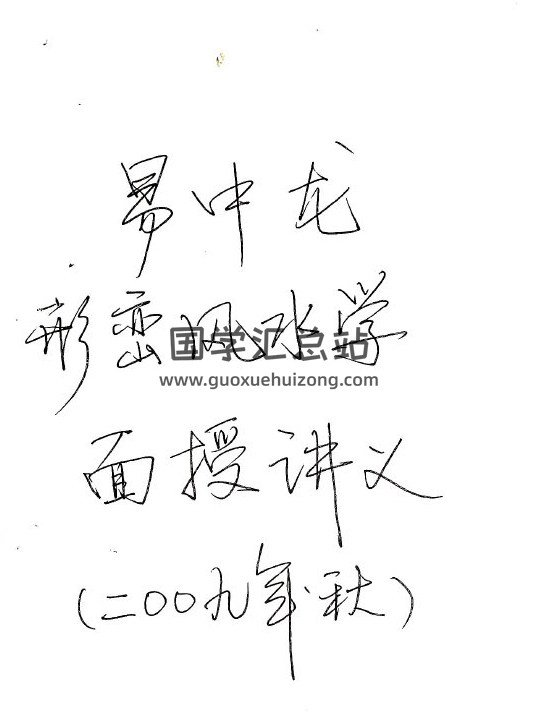 易中龙
形峦风水学
国学汇总站
www.guoxuehuizong.com
面授讲义
(二00九年·秋)